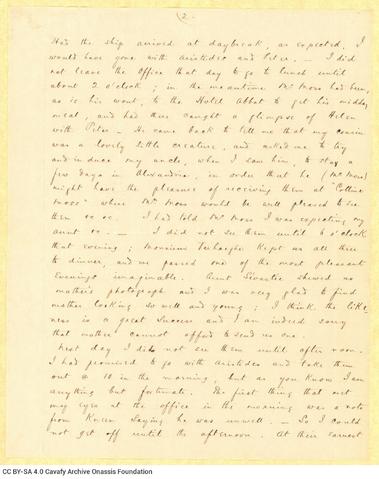 (2.
Had the ship arrived at daybreak, as expected, I
would have gone with Aristides and Peter. — I did
not leave the Office that day to go to lunch until
about 2 o'clock; in the meantime Mr Moss had been,
as is his wont, to the Hotel Abbat to get his midday
meal, and had there caught a glimpse of Helen
with Peter — He came back to tell me that my cousin
was a lovely little creature, and asked me to try
and induce my uncle, when I saw him, to stay a
few days in Alexandria, in order that he (Mr Moss)
might have the pleasure of receiving them at "Cottage
Moss" where Mrs Moss would be well pleased to see
them &c &c. — I had told Mr Moss I was expecting my
aunt &c. — I did not see them until 6 o'clock
that evening; Monsieur kept us all three
to dinner, and we passed one of the most pleasant
Evenings imaginable. Aunt Sevastie shewed me
mother's photograph and I was very glad to find
mother looking so well and young; I think the like-
ness is a great success and I am indeed sorry
that mother cannot afford to send us one.
Next day I did not see them until after noon.
I had promised to go with Aristides and take them
out @ 10 in the morning, but as you know I am
anything but fortunate. The first thing that met
my eyes at the office in the morning was a note
from saying he was unwell. — So I could
not get off until the afternoon. At their earnest
CC BY-SA 4.0 Cavafy Archive Onassis Foundation